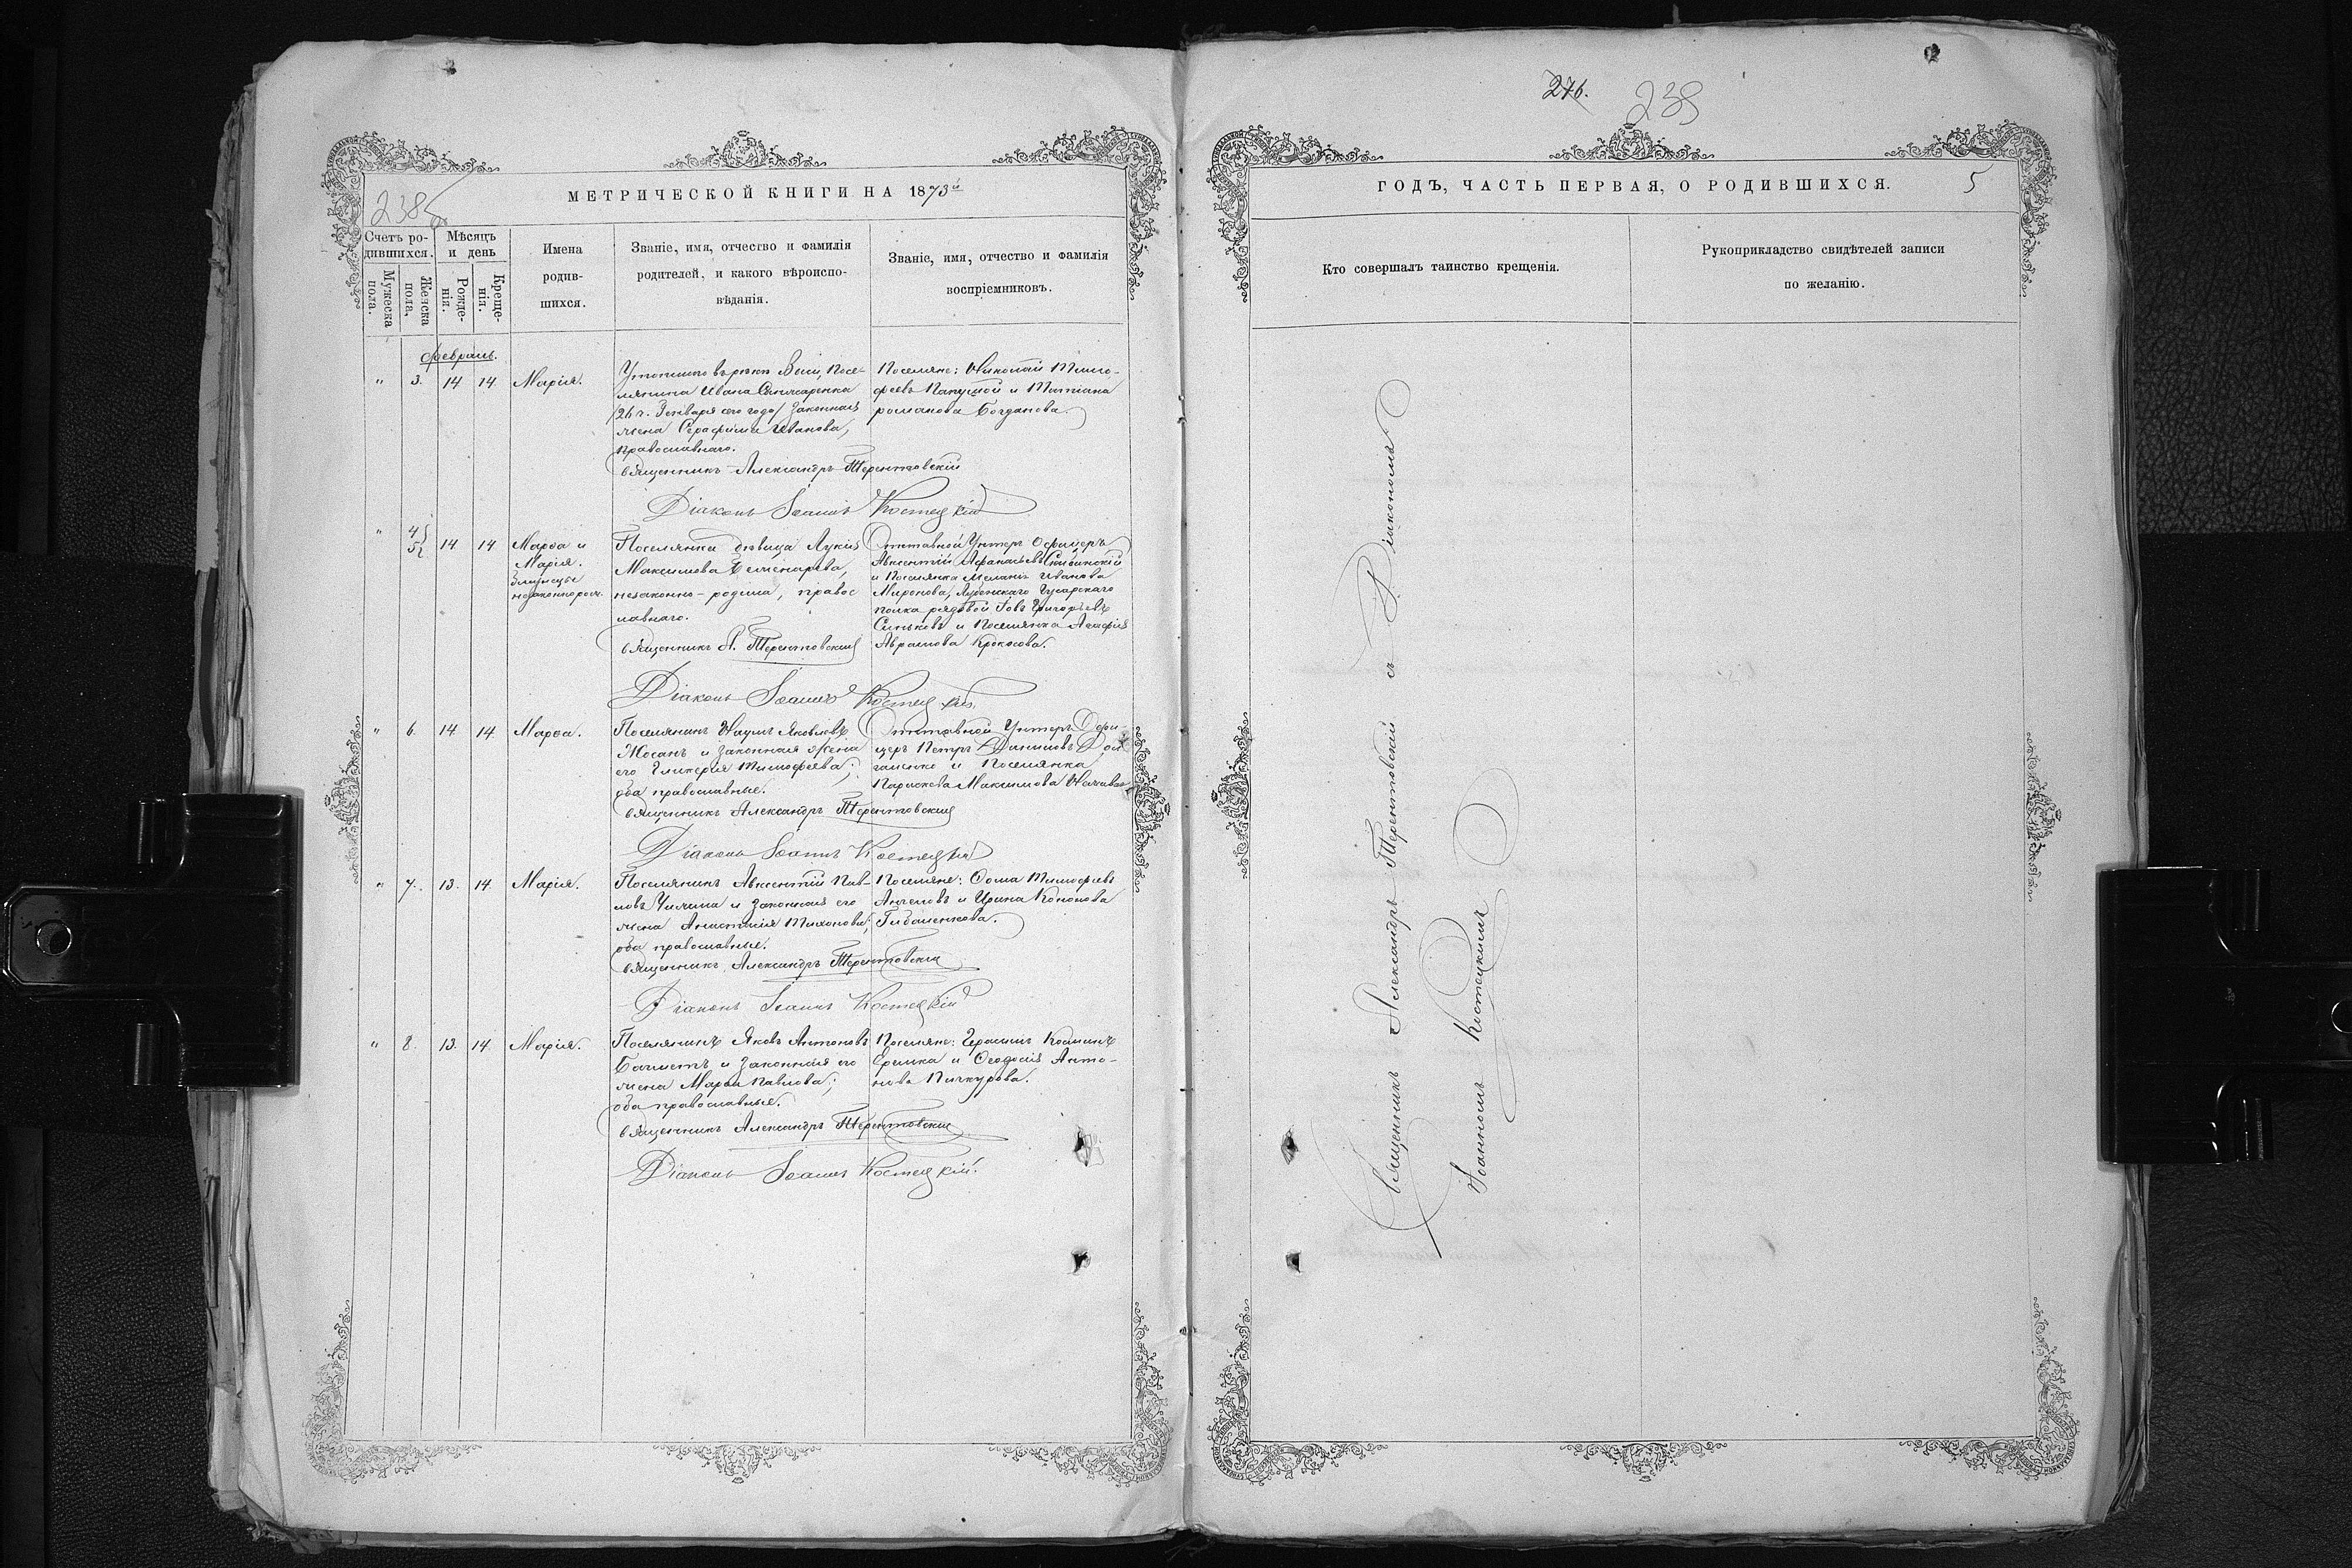 МЕТРИЧЕСКОЙ КНИГИ НА 1873й
Счетъ ро-
дившихся.
Мужеска
пола.
Женска
пола.
Мѣсяцъ
и день
Рожде-
нія.
Креще-
нія.
Имена
родив-
шихся.
Званіе, имя, отчество и фамилія
родителей, и какого вѣроиспо-
вѣданія.
Званіе, имя, отчество и фамилія
воспріемниковъ.
Февраль.
" 3. 14 14 Марія.
Утопшаго въ рѣкѣ Виси, Посе-
лянина Ивана
/26 г. Января сего года/ законная
жена Серафима Иванова,
православнаго.
Священникъ Александръ Терентовскій
Діаконъ Іоаннъ Костецкій
Поселяне: Николай Тимо-
феевъ и Татіана
романова Богданова.
" 4 5 14 14 Марѳа и
Марія.
близнецы
незаконнорож.
Поселянка дѣвица Лукія
Максимова
незаконно-родила, правос
лавнаго.
Священникъ А. Терентовскій
Діаконъ Іоаннъ Костецкій
Отставной Унтеръ Офицеръ
Авксентій Афанасьевъ
и Поселянка Меланія Иванова
Миронова, Лубенскаго Гусарскаго
полка рядовой Іовъ Григорьевъ
Синьковъ и Поселянка Агафія
Аврамова Крокосова.
" 6. 14 14. Марѳа.
Поселянинъ Наумъ Яковлевъ
Жосанъ и законная жена
его Гликерія Тимофеева;
оба православные.
Священникъ Александръ Терентовскій
Діаконъ Іоаннъ Костецкій
Отставной Унтеръ Офи-
церъ Петръ Даниловъ
и Поселянка
Параскева Максимова
" 7. 13. 14 Марія.
Поселянинъ Авксентій Пав-
ловъ и законная его
жена Анастасія Тихонова;
оба православные.
Священникъ Александръ Терентовскій
Діаконъ Іоаннъ Костецкій
Поселяне: Ѳома Тимофеевъ
Ангеловъ и Ирина Кононова
" 8. 13. 14. Марія.
Поселянинъ Яковъ Антоновъ
и законная его
жена Марѳа Павлова;
оба православные.
Священникъ Александръ Терентовскій
Діаконъ Іоаннъ Костецкій.
Поселяне: Герасимъ Косминъ
Еремка и Ѳеодосія Анто-
нова Пичкурова.
276. 238
ГОДЪ, ЧАСТЬ ПЕРВАЯ, О РОДИВШИХСЯ. 5
Кто совершалъ таинство крещенія.
Рукоприкладство свидѣтелей записи
по желанію.
Священникъ Александръ Терентовскій съ Діакономъ
Іоанномъ Костецкимъ